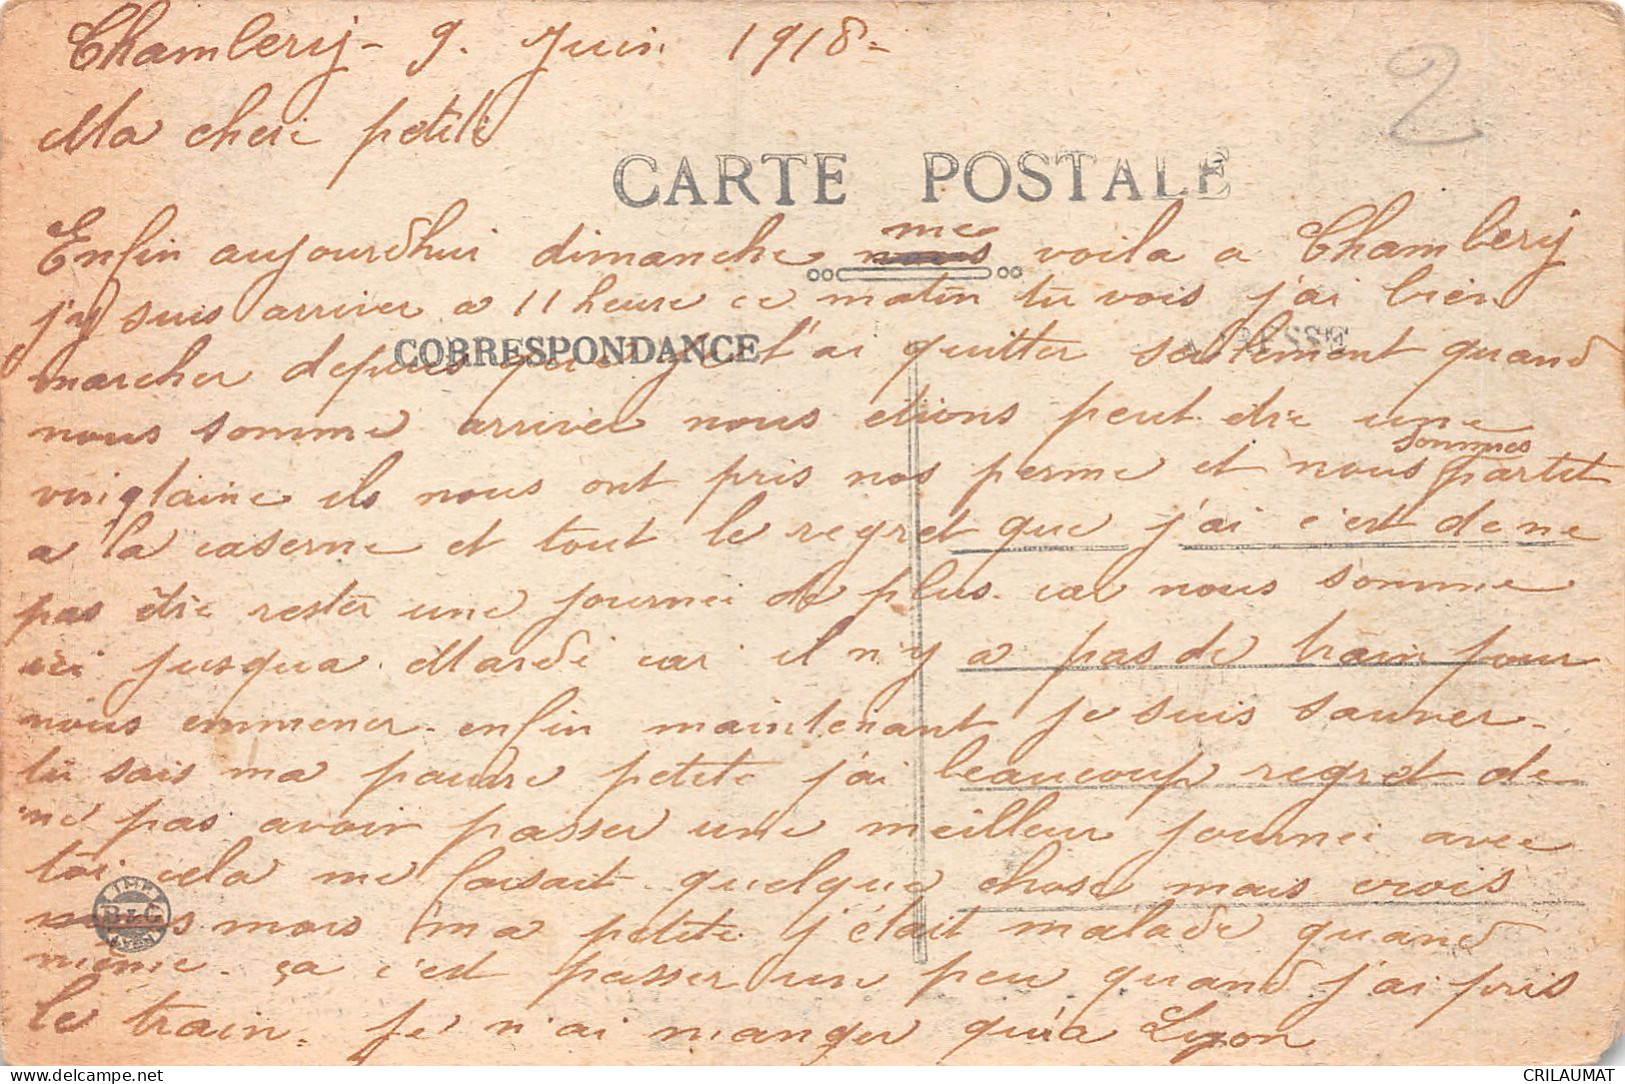 Chambery - 9. Juin 1918 -
2
Ma cheri petite
CARTE POSTALE
Enfin aujourd'hui dimanche me voila a Chambery
j'y suis arriver a 11 heure ce matin tu vois j'ai bien
CORRESPONDANCE
ADRESSE
marcher depuis que je t'ai quitter seulement quand
nous somme arriver nous etions peut etre une
vingtaine ils nous ont pris nos perme et nous sommes partit
a la caserne et tout le regret que j'ai c'est de ne
pas être rester une journei de plus. car nous somme
ici jusqua Mardi car il n'y a pas de train pour
nous emmener. enfin maintenant je suis sauver.
tu sais ma pauvre petite j'ai beaucoup regret de
ne pas avoir passer une meilleur journei avec
toi cela me faisait quelque chose mais crois
IMP. B & G LYON
mois ma petite j'était malade quand
même. ça c'est passer un peu quand j'ai pris
le train. Je n'ai manger qu'a Lyon
delcampe.net
CRILAUMAT